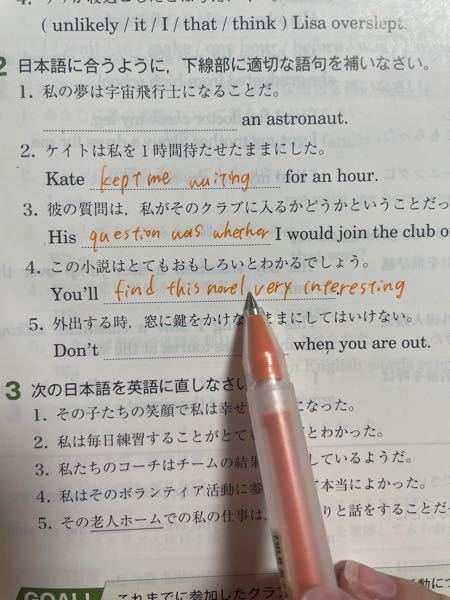 ( unlikely / it / I / that / think ) Lisa overslept.
2 日本語に合うように，下線部に適切な語句を補いなさい。
1. 私の夢は宇宙飛行士になることだ。
an astronaut.
2. ケイトは私を1時間待たせたままにした。
Kate kept me waiting for an hour.
3. 彼の質問は，私がそのクラブに入るかどうかということだっ
His question was whether I would join the club o
4. この小説はとてもおもしろいとわかるでしょう。
You'll find this novel very interesting
5. 外出する時，窓に鍵をかけな ままにしてはいけない。
Don't when you are out.
3 次の日本語を英語に直しなさい
1. その子たちの笑顔で私は幸せ になった。
2. 私は毎日練習することがとて とわかった。
3. 私たちのコーチはチームの結果 しているようだ。
4. 私はそのボランティア活動に参 て本当によかった。
5. その老人ホームでの私の仕事は， りと話をすることだ
GOAL! これまでに参加したクラ